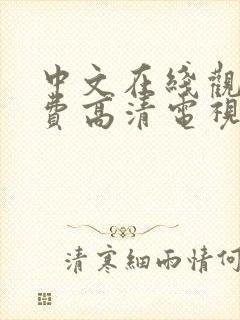 中文在綫觀
費高清電視
清寒細雨情何